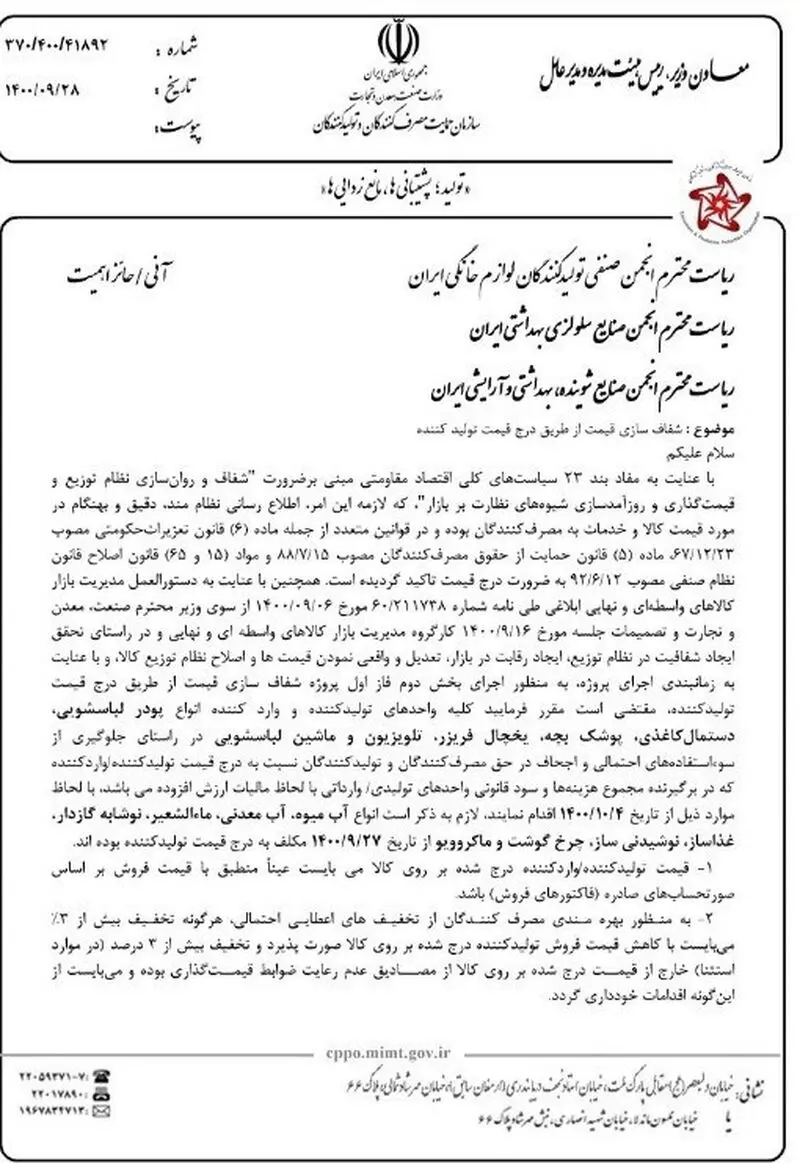 شماره : ۳۷۰/۴۰۰/۴۱۸۹۲
تاریخ : ۱۴۰۰/۰۹/۲۸
پیوست:
جمهوری اسلامی ایران
وزارت صنعت، معدن و تجارت
سازمان حمایت مصرف کنندگان و تولیدکنندگان
معاون وزیر، رییس هیئت مدیره و مدیر عامل
«تولید؛ پشتیبانی ها، مانع زدایی ها»
ریاست محترم انجمن صنفی تولیدکنندگان لوازم خانگی ایران
آنی / حائز اهمیت
ریاست محترم انجمن صنایع سلولزی بهداشتی ایران
ریاست محترم انجمن صنایع شوینده، بهداشتی و آرایشی ایران
موضوع : شفاف سازی قیمت از طریق درج قیمت تولید کننده
سلام علیکم
با عنایت به مفاد بند ۲۳ سیاست‌های کلی اقتصاد مقاومتی مبنی برضرورت "شفاف و روان‌سازی نظام توزیع و
قیمت‌گذاری و روزآمدسازی شیوه‌های نظارت بر بازار"، که لازمه این امر، اطلاع رسانی نظام مند، دقیق و بهنگام در
مورد قیمت کالا و خدمات به مصرف‌کنندگان بوده و در قوانین متعدد از جمله ماده (۶) قانون تعزیرات‌حکومتی مصوب
۶۷/۱۲/۲۳، ماده (۵) قانون حمایت از حقوق مصرف‌کنندگان مصوب ۸۸/۷/۱۵ و مواد (۱۵ و ۶۵) قانون اصلاح قانون
نظام صنفی مصوب ۹۲/۶/۱۲ به ضرورت درج قیمت تاکید گردیده است. همچنین با عنایت به دستورالعمل مدیریت بازار
کالاهای واسطه‌ای و نهایی ابلاغی طی نامه شماره ۶۰/۲۱۱۷۳۸ مورخ ۱۴۰۰/۰۹/۰۶ از سوی وزیر محترم صنعت، معدن
و تجارت و تصمیمات جلسه مورخ ۱۴۰۰/۹/۱۶ کارگروه مدیریت بازار کالاهای واسطه ای و نهایی و در راستای تحقق
ایجاد شفافیت در نظام توزیع، ایجاد رقابت در بازار، تعدیل و واقعی نمودن قیمت ها و اصلاح نظام توزیع کالا، و با عنایت
به زمانبندی اجرای پروژه، به منظور اجرای بخش دوم فاز اول پروژه شفاف سازی قیمت از طریق درج قیمت
تولیدکننده، مقتضی است مقرر فرمایید کلیه واحدهای تولیدکننده و وارد کننده انواع پودر لباسشویی،
دستمال‌کاغذی، پوشک بچه، یخچال فریزر، تلویزیون و ماشین لباسشویی در راستای جلوگیری از
سوءاستفاده‌های احتمالی و اجحاف در حق مصرف‌کنندگان و تولیدکنندگان نسبت به درج قیمت تولیدکننده/واردکننده
که در برگیرنده مجموع هزینه‌ها و سود قانونی واحدهای تولیدی/ وارداتی با لحاظ مالیات ارزش افزوده می باشد، با لحاظ
موارد ذیل از تاریخ ۱۴۰۰/۱۰/۴ اقدام نمایند، لازم به ذکر است انواع آب میوه، آب معدنی، ماءالشعیر، نوشابه گازدار،
غذاساز، نوشیدنی ساز، چرخ گوشت و ماکروویو از تاریخ ۱۴۰۰/۹/۲۷ مکلف به درج قیمت تولیدکننده بوده اند.
۱- قیمت تولیدکننده/واردکننده درج شده بر روی کالا می بایست عیناً منطبق با قیمت فروش بر اساس
صورتحساب‌های صادره (فاکتورهای فروش) باشد.
۲- به منظور بهره مندی مصرف کنندگان از تخفیف های اعطایی احتمالی، هرگونه تخفیف بیش از ۳٪
می‌بایست با کاهش قیمت فروش تولیدکننده درج شده بر روی کالا صورت پذیرد و تخفیف بیش از ۳ درصد (در موارد
استثنا) خارج از قیمت درج شده بر روی کالا از مصادیق عدم رعایت ضوابط قیمت‌گذاری بوده و می‌بایست از
این‌گونه اقدامات خودداری گردد.
cppo.mimt.gov.ir
نشانی: خیابان ولیعصر (عج) مقابل پارک ملت، خیابان استاد نجف دریابندری (ارمغان سابق)، خیابان مهرشاد شمالی، پلاک ۶۶
یا خیابان نلسون ماندلا، خیابان شهید انصاری، نبش مهرشاد پلاک ۶۶
۲۲۰۵۹۳۷۱-۷:
۲۲۰۱۷۸۹۰:
۱۹۶۷۸۳۲۷۱۳: